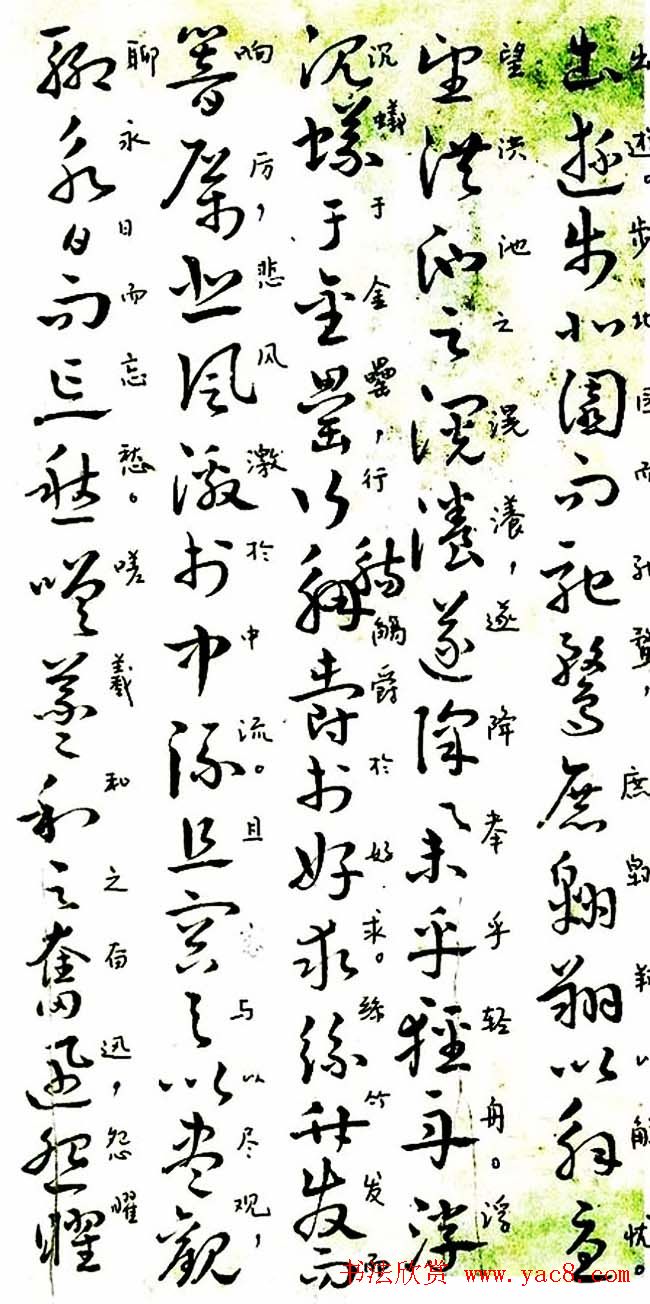 出遊步北園而馳騖庶翱翔以解憂
出遊。步北园而驰骛，庶翱翔以解忧。
望洪池之滉瀁遂降集乎輕舟浮
望洪池之滉瀁，遂降乎轻舟。浮
沉蟻于金罍行觴爵於好求絲竹發而
沉蟻于金罍，行觞爵於好求。絲竹发而
響厲悲風激於中流且容與以盡觀
响厉，悲风激於中流。且容与以尽观，
聊永日而忘愁嗟羲和之奮迅怨曜
聊永日而忘愁。嗟羲和之奋迅，怨曜
书法欣赏 www.yac8.com